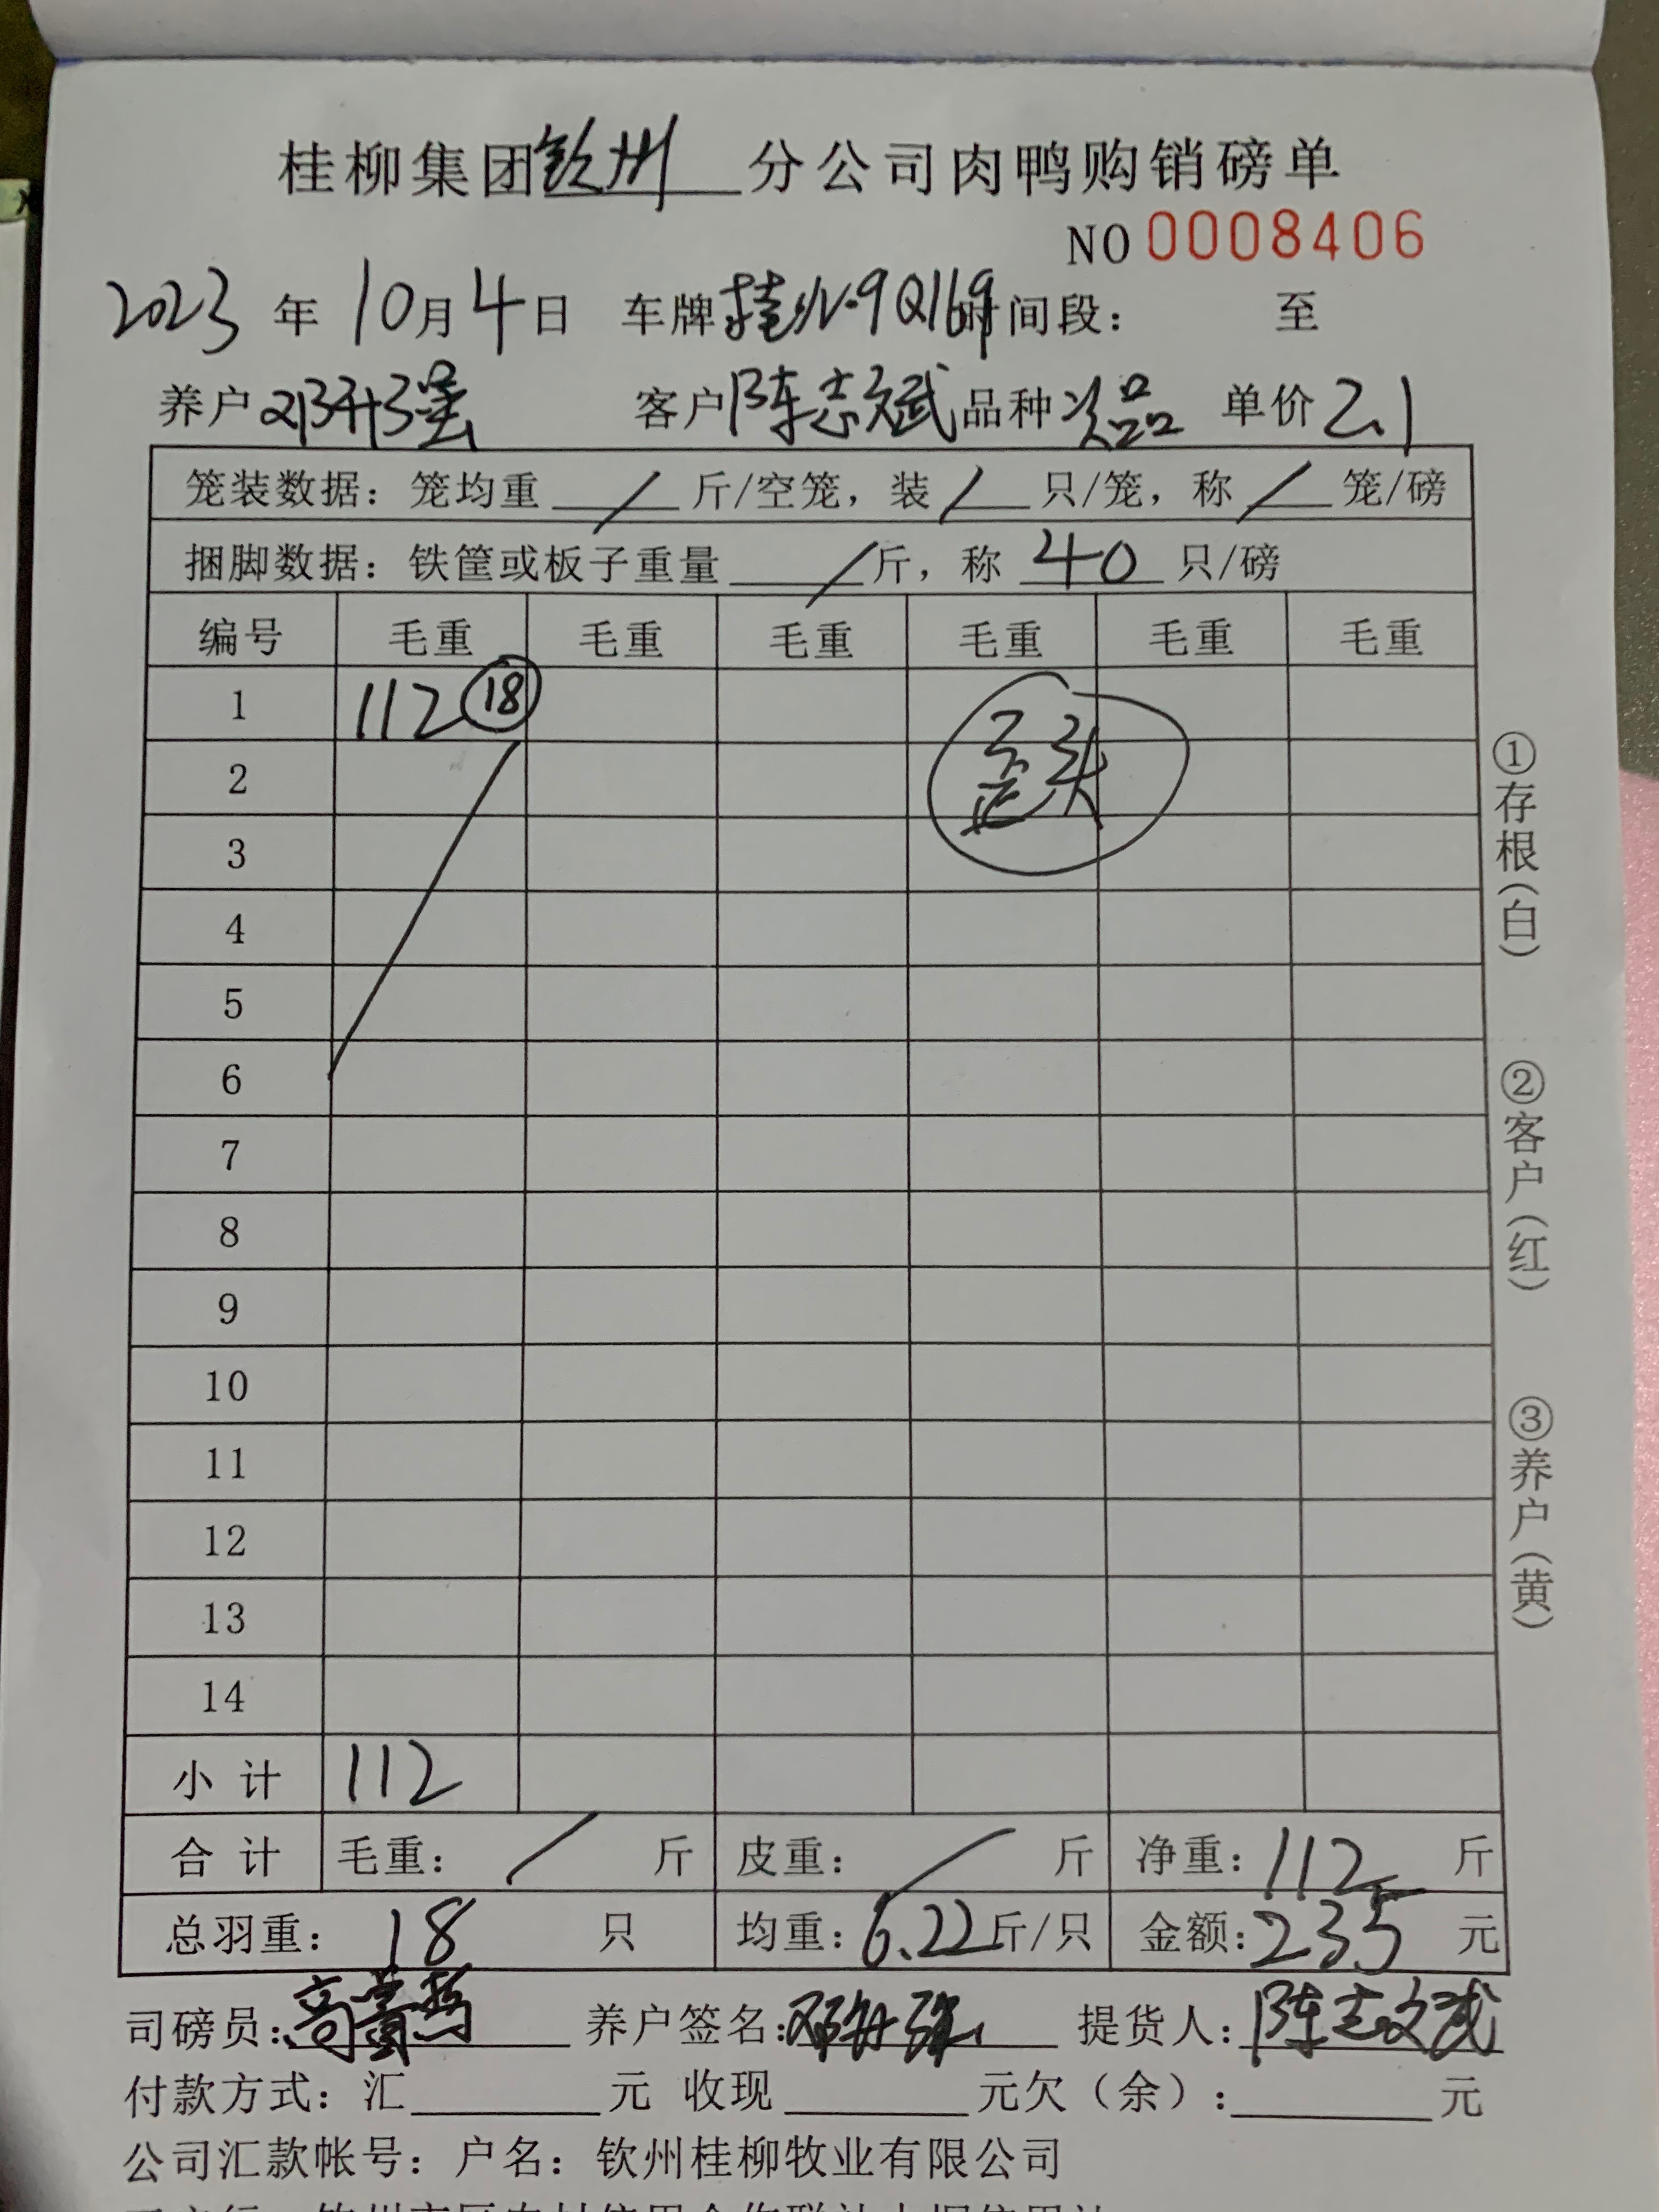 桂柳集团钦州分公司肉鸭购销磅单
NO 0008406
2023年10月4日 车牌桂N·9Q169时间段： 至
养户邓升强 客户陈志斌 品种次品 单价2.1
笼装数据：笼均重 / 斤/空笼，装 / 只/笼，称 / 笼/磅
捆脚数据：铁筐或板子重量 / 斤，称 40 只/磅
编号 毛重 毛重 毛重 毛重 毛重 毛重
1 112 18
歪头
2
3
4
5
6
7
8
9
10
11
12
13
14
小计 112
合计 毛重： / 斤 皮重： / 斤 净重：112斤
总羽重：18只 均重：6.22斤/只 金额：235元
司磅员： 养户签名：邓升强 提货人：陈志斌
付款方式：汇 元 收现 元欠（余）： 元
公司汇款帐号：户名：钦州桂柳牧业有限公司
①存根（白）
②客户（红）
③养户（黄）